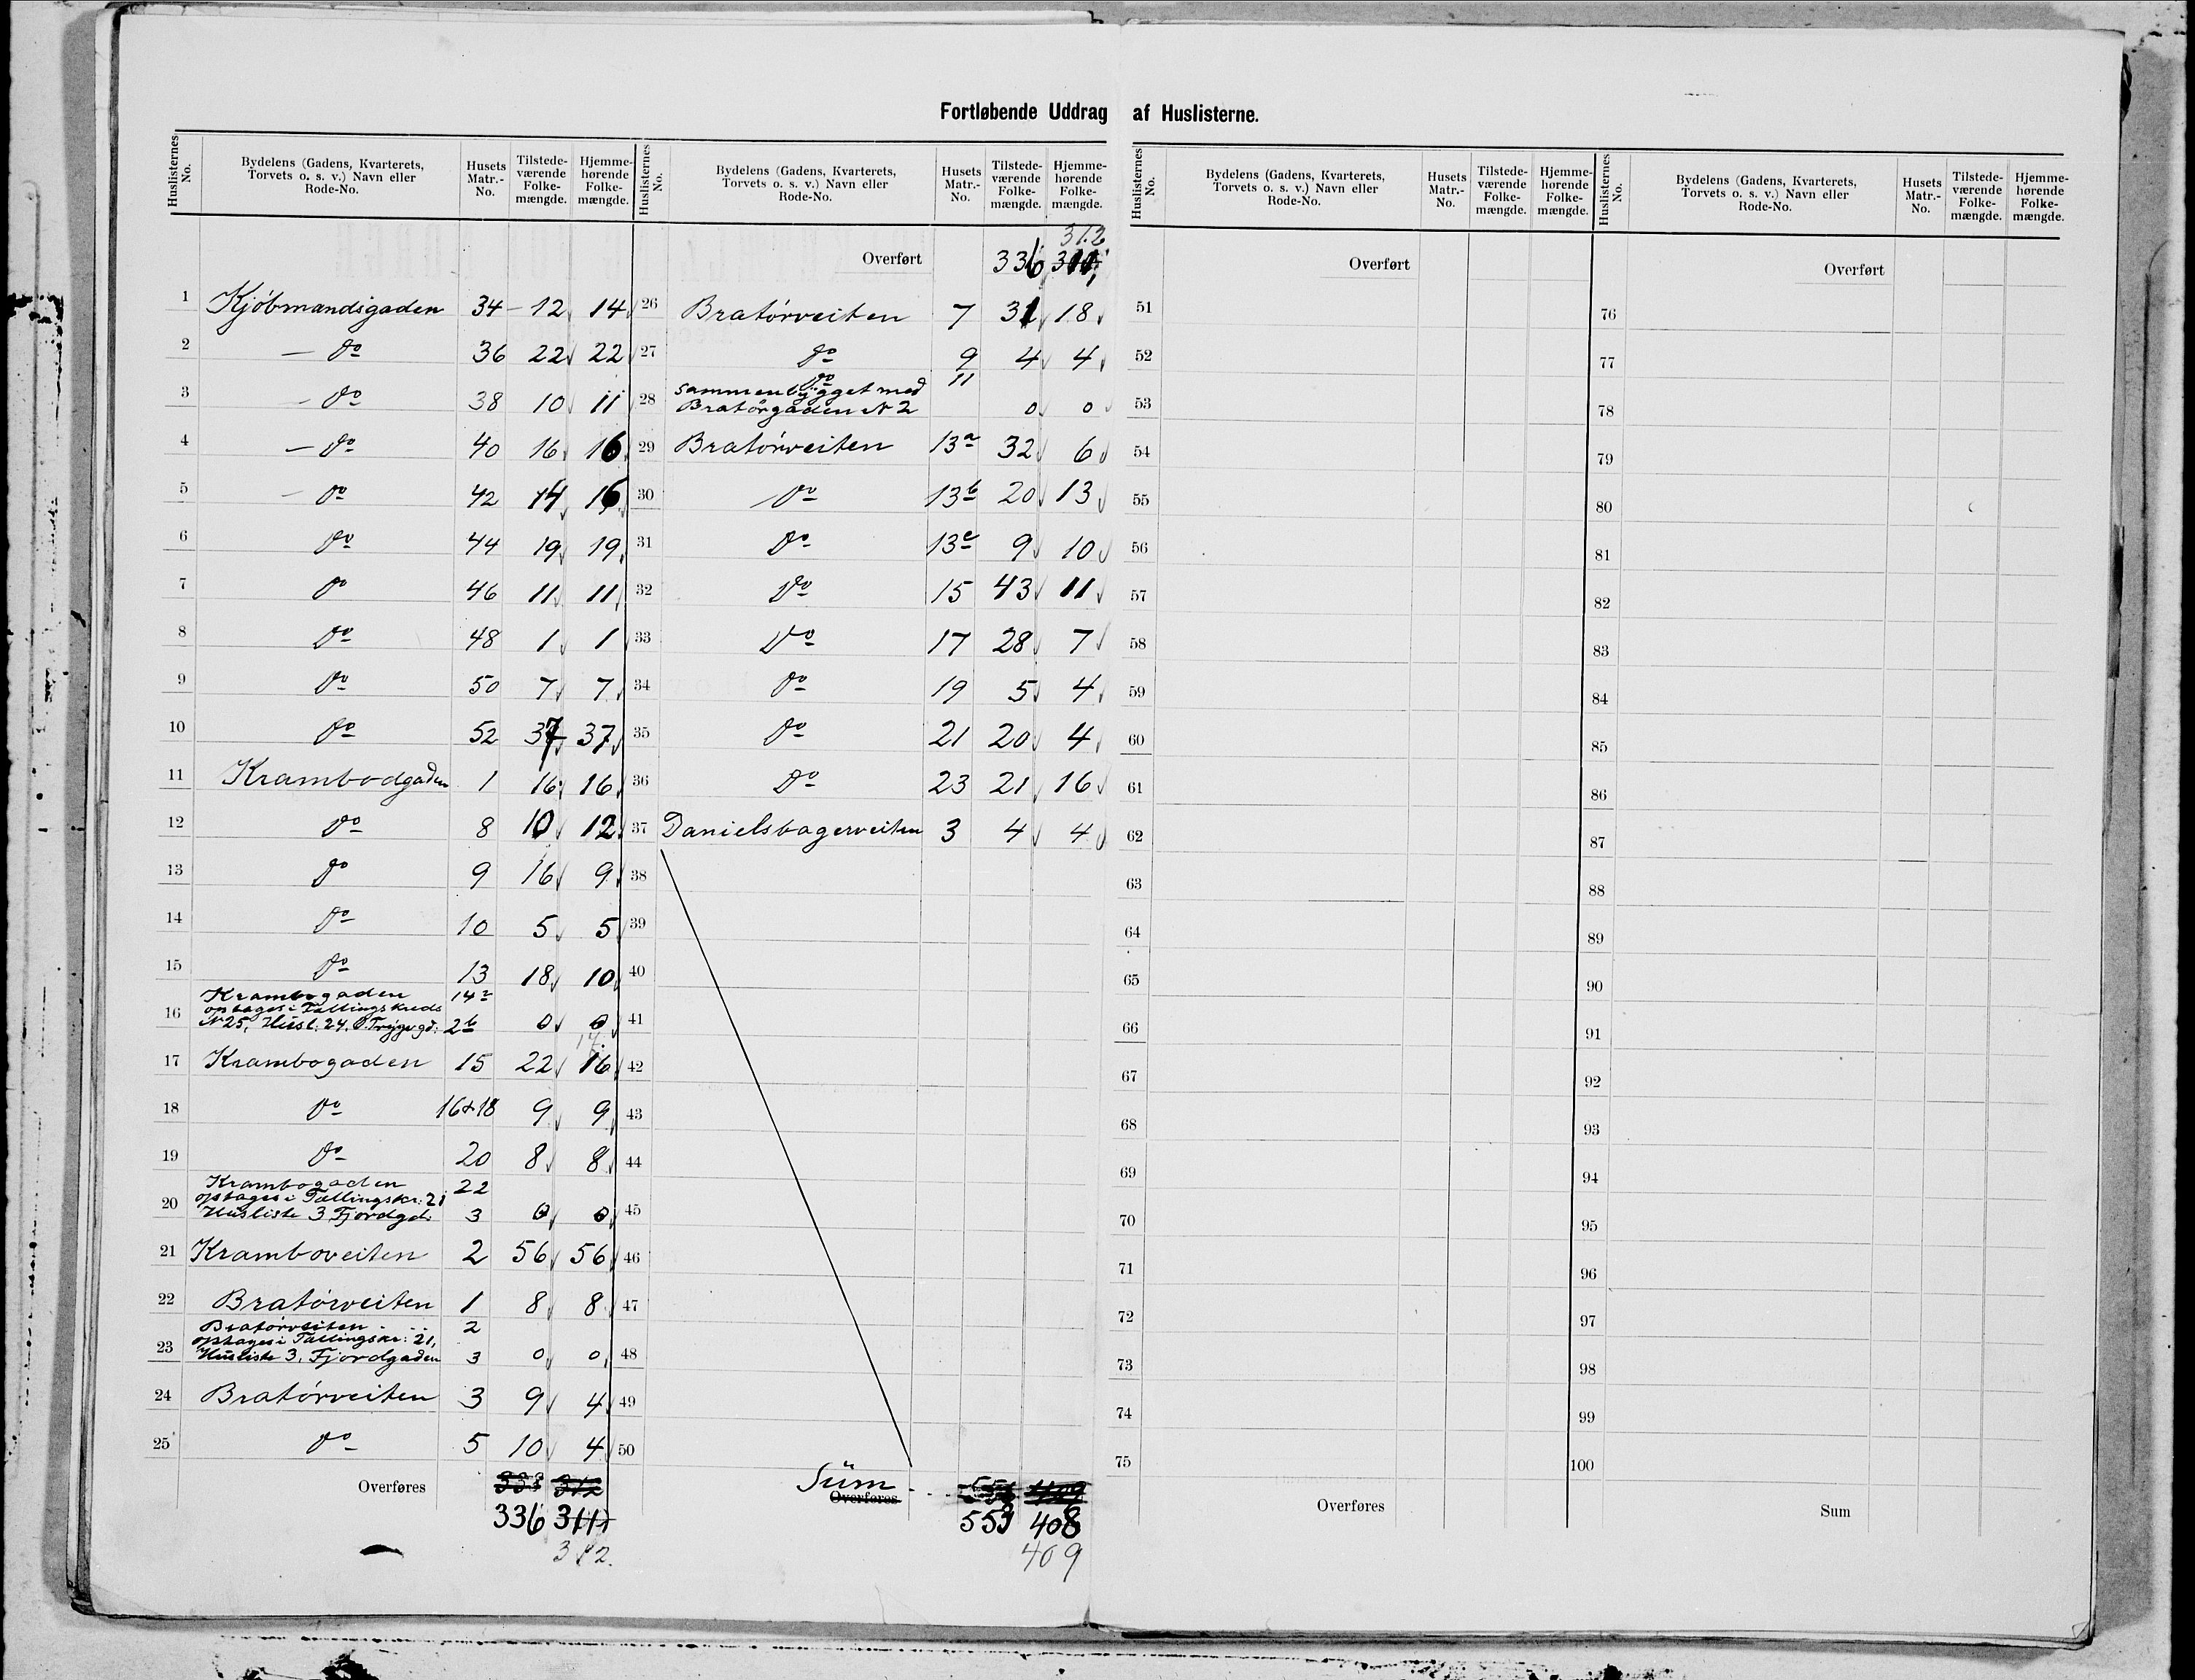 Fortløbende Uddrag af Huslisterne.
Huslisternes No. Bydelens (Gadens, Kvarterets, Torvets o. s. v.) Navn eller Rode-No. Husets Matr.-No. Tilstede-værende Folke-mængde. Hjemme-hørende Folke-mængde.
1 Kjöbmandsgaden 34 – 12 14
2 — Do 36 22 22
3 — Do 38 10 11
4 — Do 40 16 16
5 — Do 42 14 16
6 Do 44 19 19
7 Do 46 11 11
8 Do 48 1 1
9 Do 50 7 7
10 Do 52 37 37
11 Krambodgaden 1 16 16
12 Do 8 10 12
13 Do 9 16 9
14 Do 10 5 5
15 Do 13 18 10
Krambogaden 14a
optages i Tællingskreds
16 N 25, Husl. 24, O. Trygvgd: 2b 0 0
17.
17 Krambogaden 15 22 16
18 Do 16+18 9 9
19 Do 20 8 8
Krambogaden 22
optages i Tællingskr: 21
20 Husliste 3 Fjordgd: 3 0 0
21 Kramboveiten 2 56 56
22 Bratörveiten 1 8 8
Bratörveiten 2
optages i Tællingskr: 21,
23 Husliste 3, Fjordgaden 3 0 0
24 Bratörveiten 3 9 4
25 Do 5 10 4
Overføres 312
336 311
312.
Huslisternes No. Bydelens (Gadens, Kvarterets, Torvets o. s. v.) Navn eller Rode-No. Husets Matr.-No. Tilstede-værende Folke-mængde. Hjemme-hørende Folke-mængde.
312
Overført 336 311
26 Bratörveiten 7 31 18
27 Do 9 4 4
Do 11
28 sammenbygget med
Bratörgaden N 2 0 0
29 Bratörveiten 13a 32 6
30 Do 13b 20 13
31 Do 13c 9 10
32 Do 15 43 11
33 Do 17 28 7
34 Do 19 5 4
35 Do 21 20 4
36 Do 23 21 16
37 Danielsbagerveiten 3 4 4
38
39
40
41
42
43
44
45
46
47
48
49
50
Süm
Overføres 409
553 408
409
Huslisternes No. Bydelens (Gadens, Kvarterets, Torvets o. s. v.) Navn eller Rode-No. Husets Matr.-No. Tilstede-værende Folke-mængde. Hjemme-hørende Folke-mængde.
Overført
51
52
53
54
55
56
57
58
59
60
61
62
63
64
65
66
67
68
69
70
71
72
73
74
75
Overføres
Huslisternes No. Bydelens (Gadens, Kvarterets, Torvets o. s. v.) Navn eller Rode-No. Husets Matr.-No. Tilstede-værende Folke-mængde. Hjemme-hørende Folke-mængde.
Overført
76
77
78
79
80
81
82
83
84
85
86
87
88
89
90
91
92
93
94
95
96
97
98
99
100
Sum